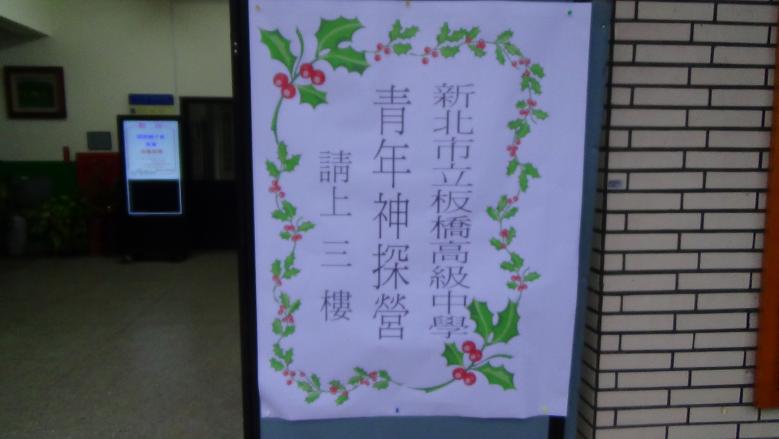 新北市立板橋高級中學
青年神探營
請上三樓